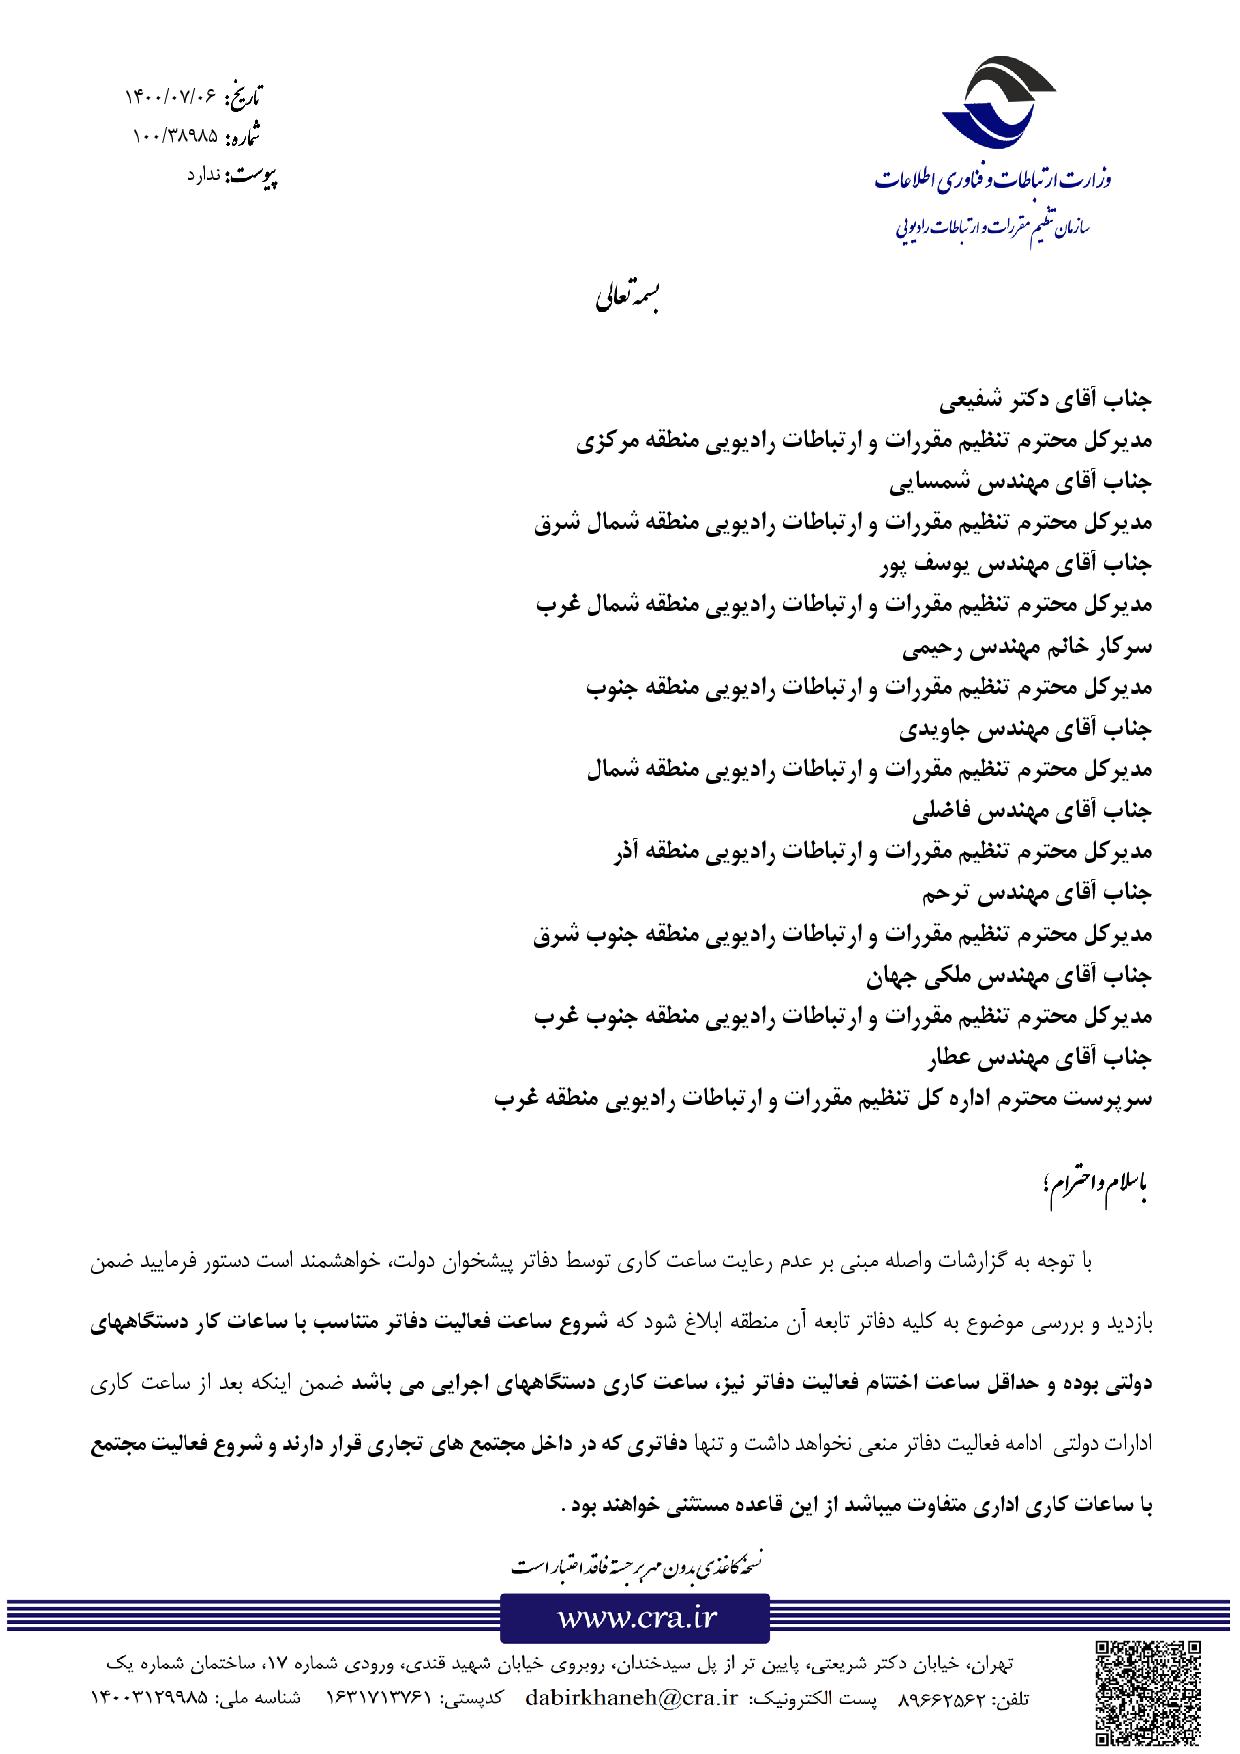 تاریخ: ۱۴۰۰/۰۷/۰۶
شماره: ۱۰۰/۳۸۹۸۵
پیوست: ندارد
وزارت ارتباطات و فناوری اطلاعات
سازمان تنظیم مقررات و ارتباطات رادیویی
بسمه تعالی
جناب آقای دکتر شفیعی
مدیرکل محترم تنظیم مقررات و ارتباطات رادیویی منطقه مرکزی
جناب آقای مهندس شمسایی
مدیرکل محترم تنظیم مقررات و ارتباطات رادیویی منطقه شمال شرق
جناب آقای مهندس یوسف پور
مدیرکل محترم تنظیم مقررات و ارتباطات رادیویی منطقه شمال غرب
سرکار خانم مهندس رحیمی
مدیرکل محترم تنظیم مقررات و ارتباطات رادیویی منطقه جنوب
جناب آقای مهندس جاویدی
مدیرکل محترم تنظیم مقررات و ارتباطات رادیویی منطقه شمال
جناب آقای مهندس فاضلی
مدیرکل محترم تنظیم مقررات و ارتباطات رادیویی منطقه آذر
جناب آقای مهندس ترحم
مدیرکل محترم تنظیم مقررات و ارتباطات رادیویی منطقه جنوب شرق
جناب آقای مهندس ملکی جهان
مدیرکل محترم تنظیم مقررات و ارتباطات رادیویی منطقه جنوب غرب
جناب آقای مهندس عطار
سرپرست محترم اداره کل تنظیم مقررات و ارتباطات رادیویی منطقه غرب
با سلام و احترام؛
با توجه به گزارشات واصله مبنی بر عدم رعایت ساعت کاری توسط دفاتر پیشخوان دولت، خواهشمند است دستور فرمایید ضمن
بازدید و بررسی موضوع به کلیه دفاتر تابعه آن منطقه ابلاغ شود که شروع ساعت فعالیت دفاتر متناسب با ساعات کار دستگاههای
دولتی بوده و حداقل ساعت اختتام فعالیت دفاتر نیز، ساعت کاری دستگاههای اجرایی می باشد ضمن اینکه بعد از ساعت کاری
ادارات دولتی ادامه فعالیت دفاتر منعی نخواهد داشت و تنها دفاتری که در داخل مجتمع های تجاری قرار دارند و شروع فعالیت مجتمع
با ساعات کاری اداری متفاوت میباشد از این قاعده مستثنی خواهند بود .
نسخه کاغذی بدون مهر برجسته فاقد اعتبار است
www.cra.ir
تهران، خیابان دکتر شریعتی، پایین تر از پل سیدخندان، روبروی خیابان شهید قندی، ورودی شماره ۱۷، ساختمان شماره یک
تلفن: ۸۹۶۶۲۵۶۲ پست الکترونیک: dabirkhaneh@cra.ir کدپستی: ۱۶۳۱۷۱۳۷۶۱ شناسه ملی: ۱۴۰۰۳۱۲۹۹۸۵